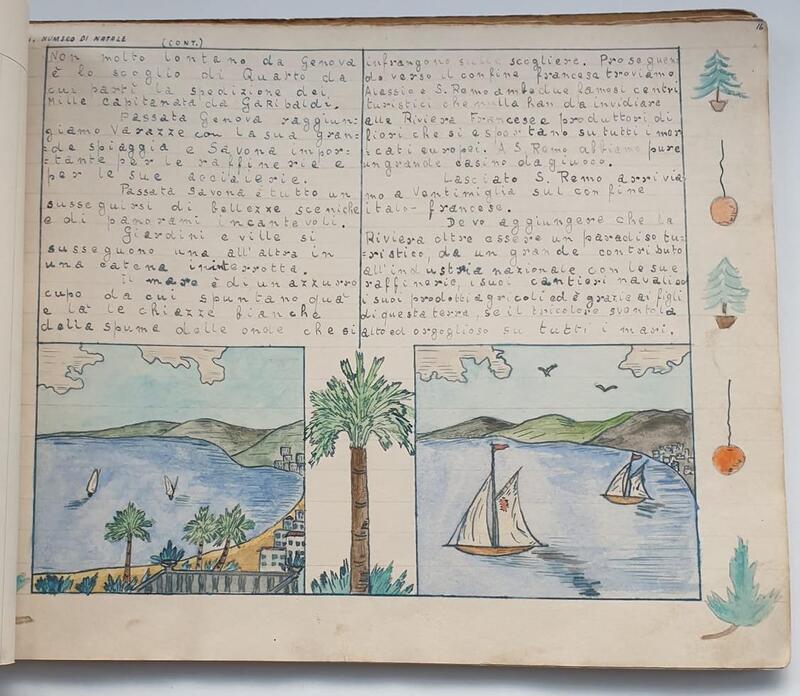 NUMERO DI NATALE (CONT.)
16
Non molto lontano da Genova
è lo scoglio di Quarto da
cui partì la spedizione dei
Mille capitanata da Garibaldi.
Passata Genova raggiun-
giamo Varazze con la sua gran-
de spiaggia e Savona impor-
tante per le raffinerie e
per le sue acciaierie.
Passata Savona è tutto un
susseguirsi di bellezze sceniche
e di panorami incantevoli.
Giardini e ville si
susseguono una all'altra in
una catena ininterrotta.
Il mare è di un azzurro
cupo da cui spuntano quà
e là le chiazze bianche
della spume delle onde che si
infrangono sulle scogliere. Proseguen-
do verso il confine francese troviamo
Alassio e S. Remo ambedue famosi centri
turistici che nulla han da invidiare
alle Riviera Francese e produttori di
fiori che si esportano su tutti i mer-
cati europei. A S. Remo abbiamo pure
un grande casino da giuoco.
Lasciato S. Remo arrivia-
mo a Ventimiglia sul confine
italo-francese.
Devo aggiungere che la
Riviera oltre essere un paradiso tu-
ristico, da un grande contributo
all'industria nazionale con le sue
raffinerie, i suoi cantieri navali, o
i suoi prodotti agricoli ed è grazie ai figli
di questa terra, se il tricolore sventola
alto ed orgoglioso su tutti i mari.